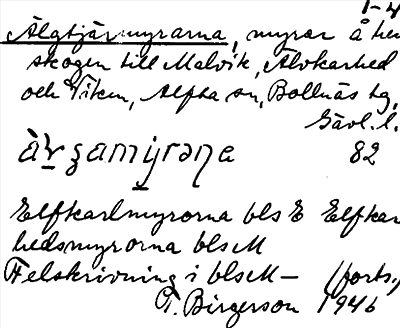 1-4
Älgtjärmyrarna, myrar å hem
skogen till Malvik, Älvkarhed
och Viken, Alfta sn, Bollnäs tg,
Gävl. l.
82
Elfkarlmyrorna bls E Elfkar
hedsmyrorna bls M
Felskrivning i bls M – (forts.)
T. Birgerson 1946